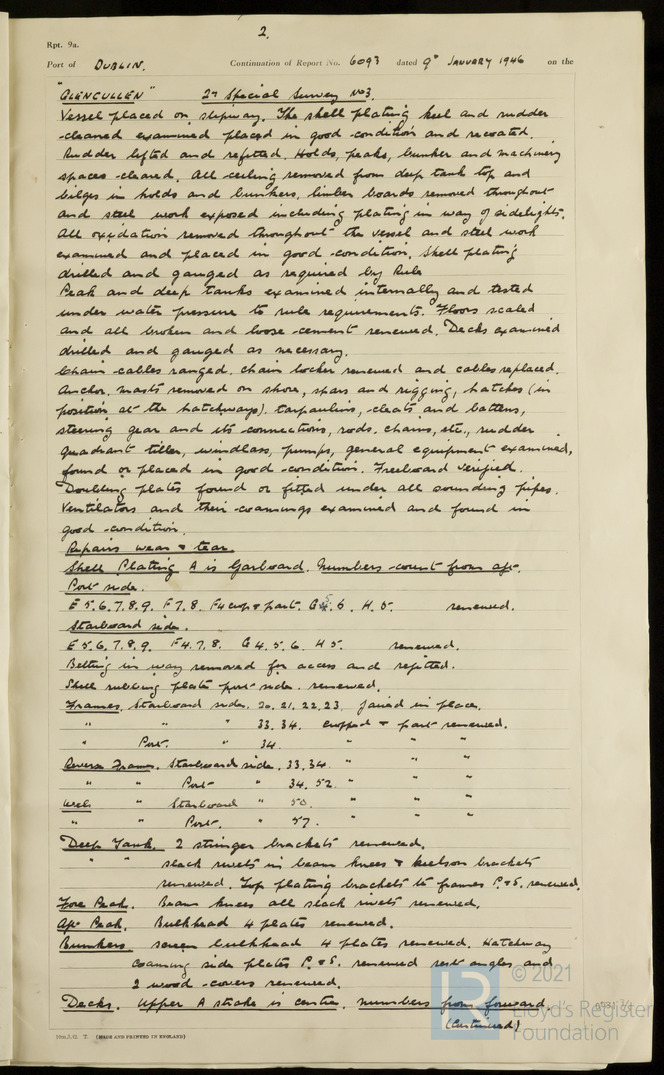 2.
Rpt. 9a.
Port of DUBLIN. Continuation of Report No. 6093 dated 9th JANUARY 1946 on the
"GLENCULLEN" 2nd Special Survey No3.
Vessel placed on slipway. The shell plating keel and rudder
cleaned examined placed in good condition and recoated.
Rudder lifted and refitted. Holds, peaks, bunker and machinery
spaces cleared. All ceiling removed from deep tank top and
bilges in holds and bunkers, limber boards removed throughout
and steel work exposed including plating in way of sidelights.
All oxidation removed throughout the vessel and steel work
examined and placed in good condition. Shell plating
drilled and gauged as required by Rule
Peak and deep tanks examined internally and tested
under water pressure to rule requirements. Floors scaled
and all broken and loose cement renewed. Decks examined
drilled and gauged as necessary.
Chain cables ranged. chain locker renewed and cables replaced.
Anchor, masts removed on shore, spars and rigging, hatches (in
position at the hatchways). tarpaulins, cleats and battens,
steering gear and its connections, rods, chains, etc., rudder
quadrant tiller, windlass, pumps, general equipment examined,
found or placed in good condition. Freeboard verified.
Doubling plates found or fitted under all sounding pipes.
Ventilators and their coamings examined and found in
good condition.
Repairs wear & tear.
Shell Plating A is Garboard. Numbers count from aft.
Port side.
E 5.6.7.8.9. F 7.8. F4 crop & part. G 5. 6. H. 5. renewed.
Starboard side.
E 5.6.7.8.9. F 4.7.8. G 4.5.6. H 5. renewed.
Belting in way removed for access and refitted.
Shell rubbing plates port side. renewed.
Frames. Starboard side. 20.21.22.23. faired in place.
" " " 33.34. cropped & part renewed.
" Port. " 34. " " "
Reverse Frames. Starboard side. 33.34. " " "
" " Port " 34. 52. " " "
Web " Starboard " 50. " " "
" " Port. " 57. " " "
Deep Tank. 2 stringer brackets renewed.
" " slack rivets in beam knees & keelson brackets
renewed. Top plating brackets to frames P.&S. renewed.
Fore Peak. Beam knees all slack rivets renewed.
Aft Peak. Bulkhead 4 plates renewed.
Bunkers screen bulkhead 4 plates renewed. Hatchway
coaming side plates P.&S. renewed rest angles and
2 wood covers renewed.
Decks. Upper A strake is centre. numbers from forward.
(Continued)
(MADE AND PRINTED IN ENGLAND)
LR
© 2021
Lloyd's Register
Foundation